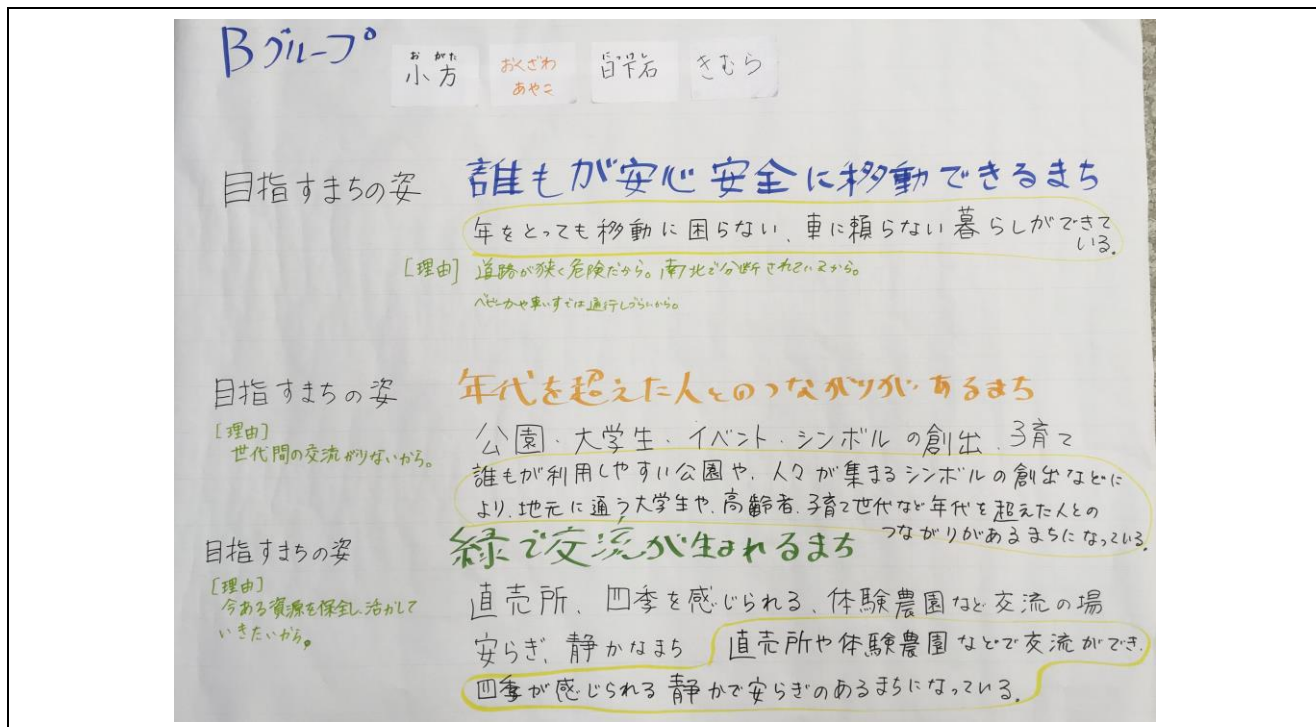 Bグループ
おがた
小方
おくざわ
あやこ
きむら
目指すまちの姿 誰もが安心安全に移動できるまち
年をとっても移動に困らない、車に頼らない暮らしができて
いる。
[理由] 道路が狭く危険だから。南北で分断されているから。
ベビーカや車いすでは通行しづらいから。
目指すまちの姿 年代を超えた人とのつながりが あるまち
[理由]
世代間の交流が少ないから。
公園・大学生・イベント・シンボルの創出、子育て
誰もが利用しやすい公園や、人々が集まるシンボルの創出などに
より、地元に通う大学生や、高齢者、子育て世代など年代を超えた人との
つながりがあるまちになっている。
目指すまちの姿 緑で交流が生まれるまち
[理由]
今ある資源を保全し、活かして
いきたいから。
直売所、四季を感じられる、体験農園など交流の場
安らぎ、静かなまち 直売所や体験農園などで交流ができ、
四季が感じられる静かで安らぎのあるまちになっている。